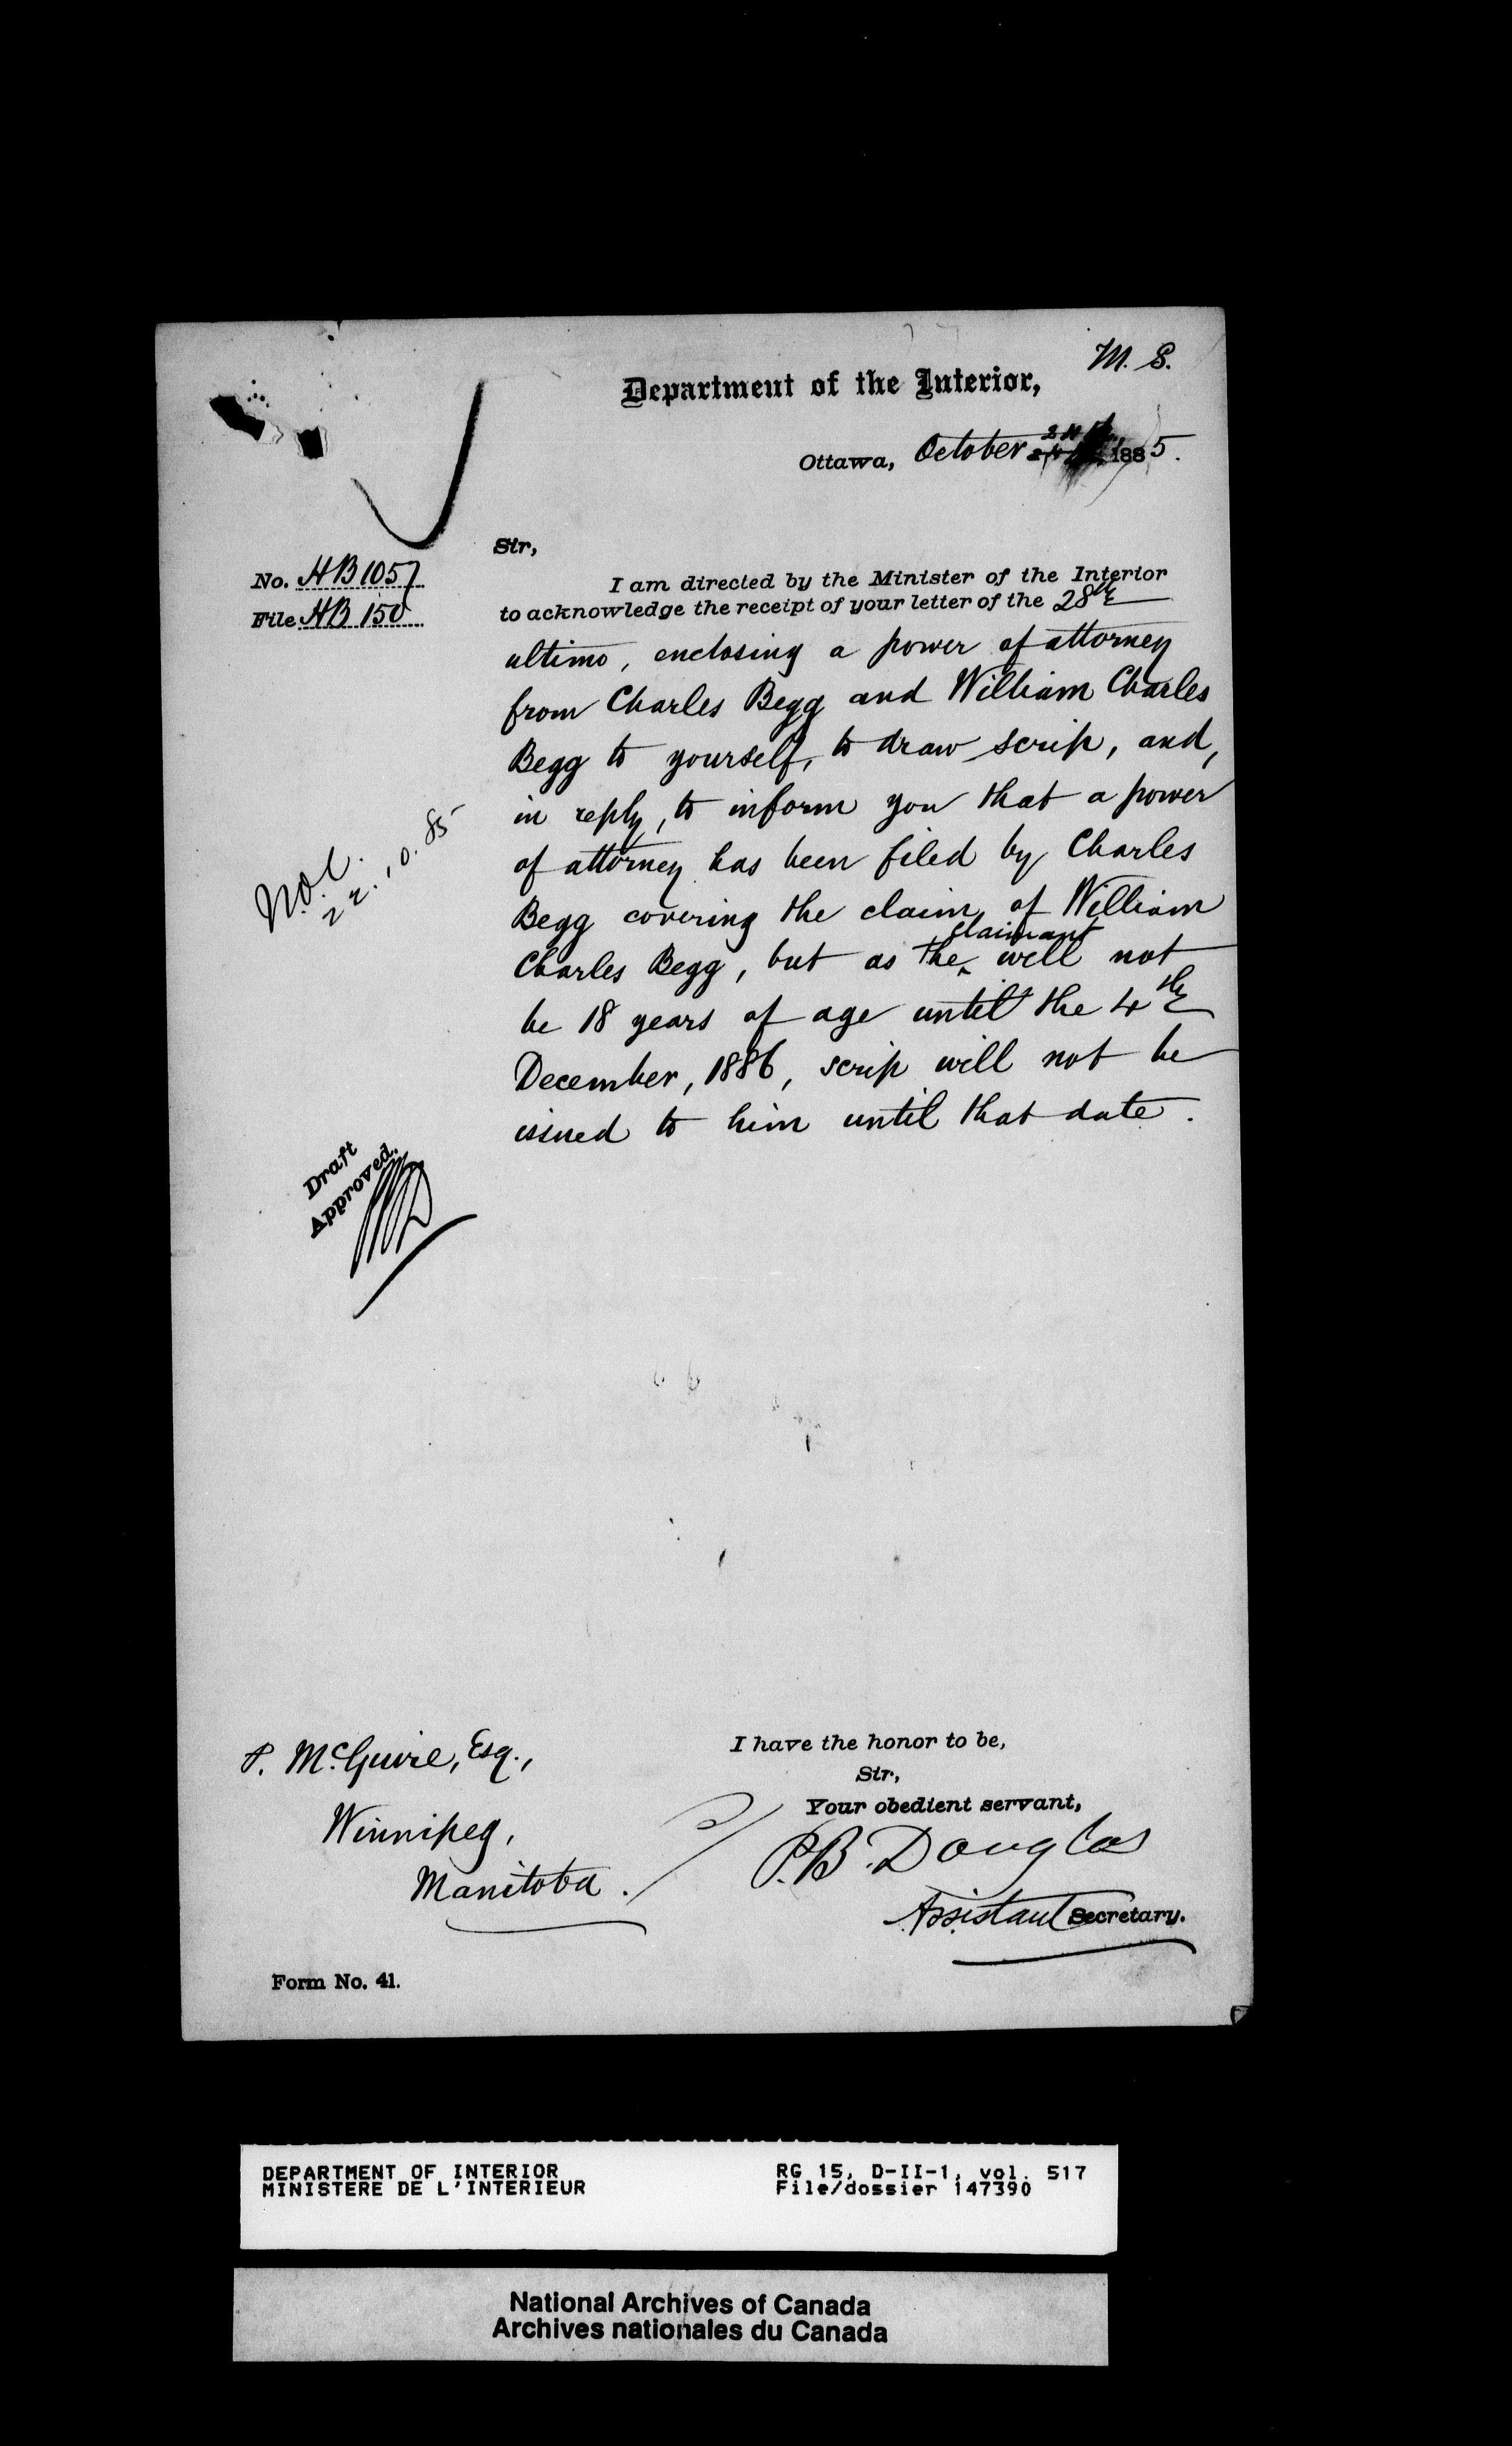 M. S.
Department of the Interior,
Ottawa, October 24th 1885.
No. HB 1057
File HB 150
Sir,
I am directed by the Minister of the Interior
to acknowledge the receipt of your letter of the 28th
ultimo, enclosing a power of attorney
from Charles Begg and William Charles
Begg to yourself, to draw scrip, and,
in reply, to inform you that a power
of attorney has been filed by Charles
Begg covering the claim of William
claimant
Charles Begg, but as the ‸ will not
be 18 years of age until the 4th
December, 1886, scrip will not be
issued to him until that date.
22.10.85
Draft
Approved.
P. McGuire, Esq.,
Winnipeg,
Manitoba.
I have the honor to be,
Sir,
Your obedient servant,
P.B. Douglas
Assistant Secretary.
Form No. 41.
DEPARTMENT OF INTERIOR
MINISTERE DE L'INTERIEUR
RG 15, D-II-1, vol. 517
File/dossier 147390
National Archives of Canada
Archives nationales du Canada